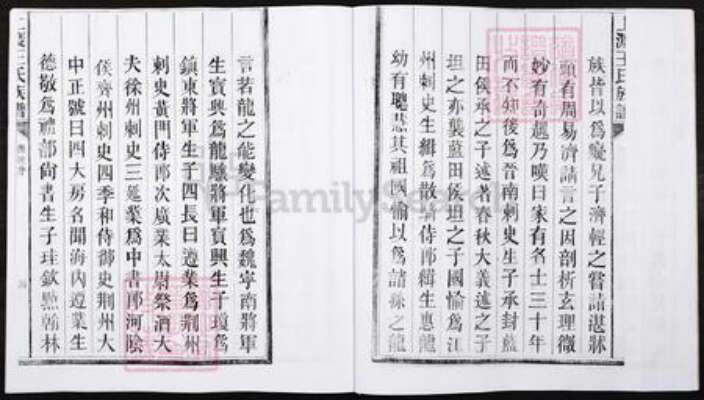 族皆以為癡兄子濟輕之嘗詣湛牀
頭有周易濟請言之因剖析玄理微
妙有奇趣乃嘆曰家有名士三十年
而不知後為晉南刺史生子承封藍
田侯承之子述著春秋大義述之子
坦之亦襲藍田侯坦之子國愉為江
州刺史生緝為散騎侍郎緝生惠龍
幼有聰慧其祖國愉以為諸孫之龍
言若龍之能變化也為魏寧南將軍
生寶興為龍驤將軍寶興生子瓊為
鎮東將軍生子四長曰遵業為荆州
刺史黃門侍郎次廣業太尉祭酒大
夫徐州刺史三延業為中書郎河陰
侯齊州刺史四季和侍御史荆州大
中正號曰四大房名聞海內遵業生
德敬為禮部尚書生子珪欽點翰林
王氏族譜
FamilySearch